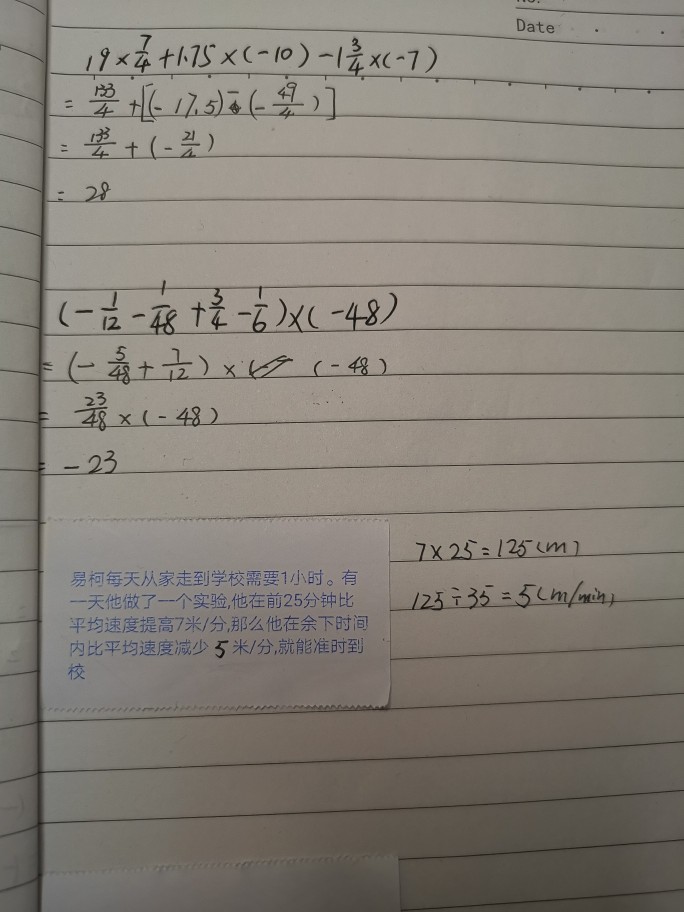 Date
19×7/4+1.75×(-10)-1 3/4×(-7)
=133/4+[(-17.5)-(-49/4)]
=133/4+(-21/4)
=28
(-1/12-1/48+3/4-1/6)×(-48)
=(-5/48+7/12)×(-48)
=23/48×(-48)
=-23
7×25=125(m)
125÷35=5(m/min)
易柯每天从家走到学校需要1小时。有
一天他做了一个实验,他在前25分钟比
平均速度提高7米/分,那么他在余下时间
内比平均速度减少 5 米/分,就能准时到
校